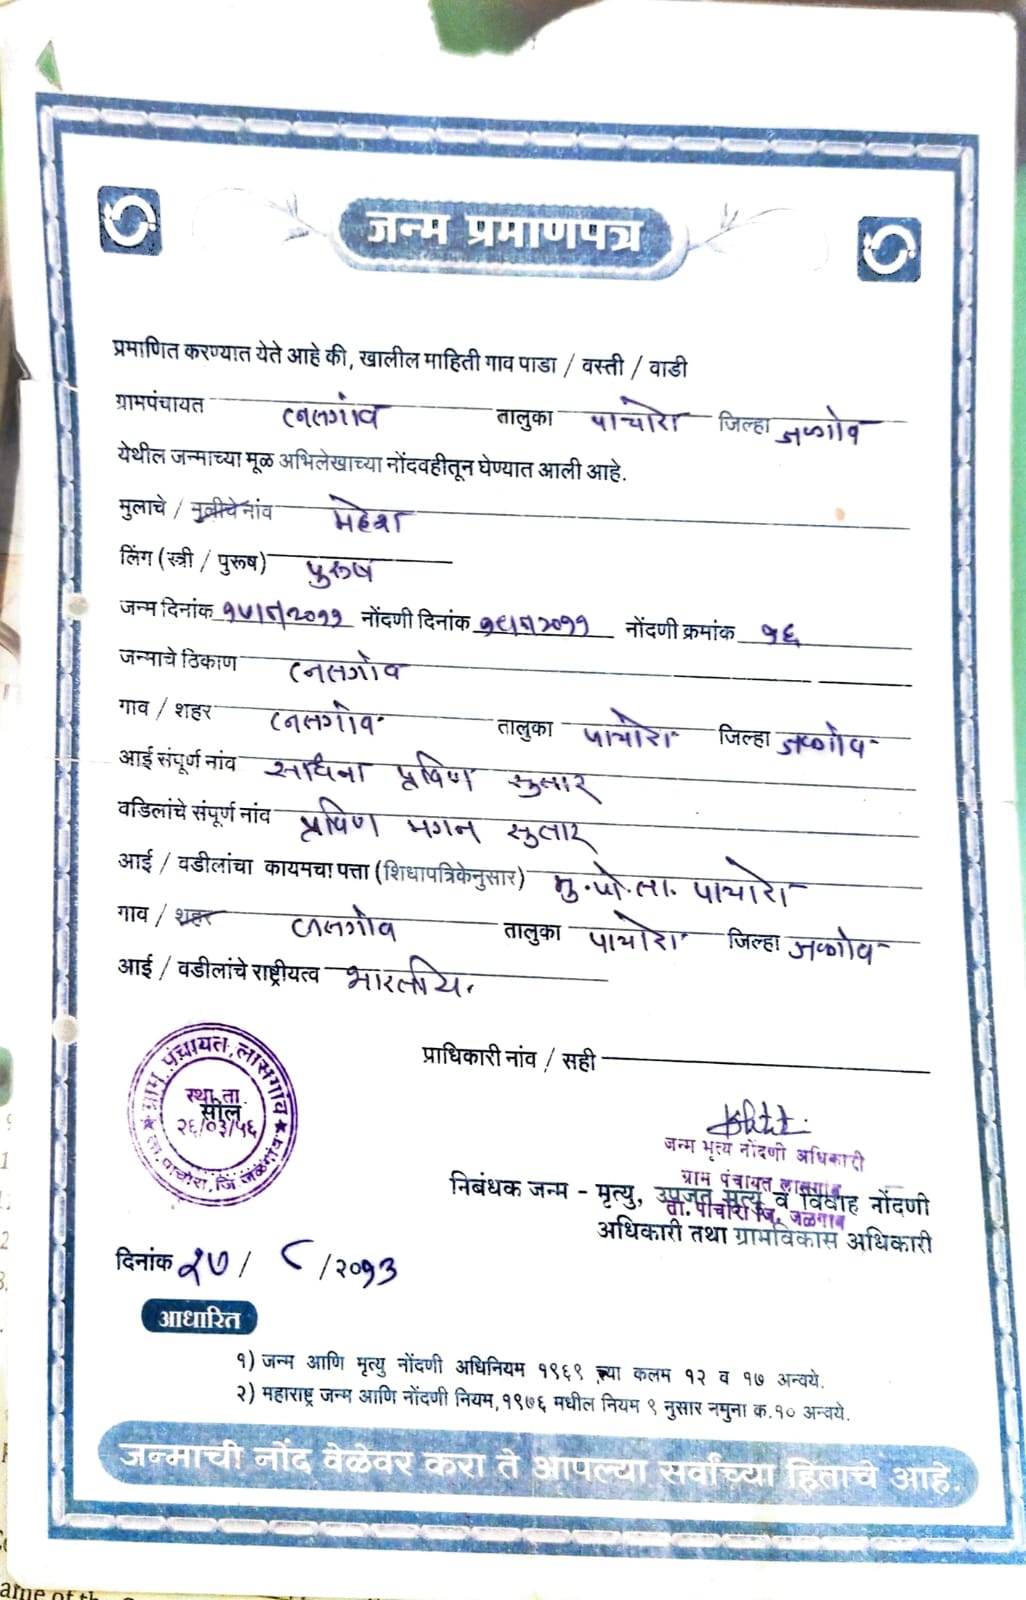 जन्म प्रमाणपत्र
प्रमाणित करण्यात येते आहे की, खालील माहिती गाव पाडा / वस्ती / वाडी
ग्रामपंचायत लासगांव तालुका पाचोरा जिल्हा जळगांव
येथील जन्माच्या मूळ अभिलेखाच्या नोंदवहीतून घेण्यात आली आहे.
मुलाचे / मुलीचे नांव महेश
लिंग (स्त्री / पुरूष) पुरूष
जन्म दिनांक नोंदणी दिनांक नोंदणी क्रमांक १६
जन्माचे ठिकाण लासगांव
गाव / शहर लासगांव तालुका पाचोरा जिल्हा जळगांव
आई संपूर्ण नांव प्रविण सुतार
वडिलांचे संपूर्ण नांव प्रविण मगन सुतार
आई / वडीलांचा कायमचा पत्ता (शिधापत्रिकेनुसार) मु.पो.ता. पाचोरा
गाव / शहर लासगांव तालुका पाचोरा जिल्हा जळगांव
आई / वडीलांचे राष्ट्रीयत्व भारतीय.
प्राधिकारी नांव / सही
ग्राम पंचायत, लासगांव
स्था. ता.
सील
२६/०३/५६
ता. पाचोरा, जि. जळगांव
जन्म मृत्य नोंदणी अधिकारी
ग्राम पंचायत लासगांव
निबंधक जन्म - मृत्यु, उपजत मृत्यु व विवाह नोंदणी
ता. पाचोरा जि. जळगाव
अधिकारी तथा ग्रामविकास अधिकारी
दिनांक २७/ ८ /२०१३
आधारित
१) जन्म आणि मृत्यु नोंदणी अधिनियम १९६९ च्या कलम १२ व १७ अन्वये.
२) महाराष्ट्र जन्म आणि नोंदणी नियम, १९७६ मधील नियम ९ नुसार नमुना क.१० अन्वये.
जन्माची नोंद वेळेवर करा ते आपल्या सर्वांच्या हिताचे आहे.